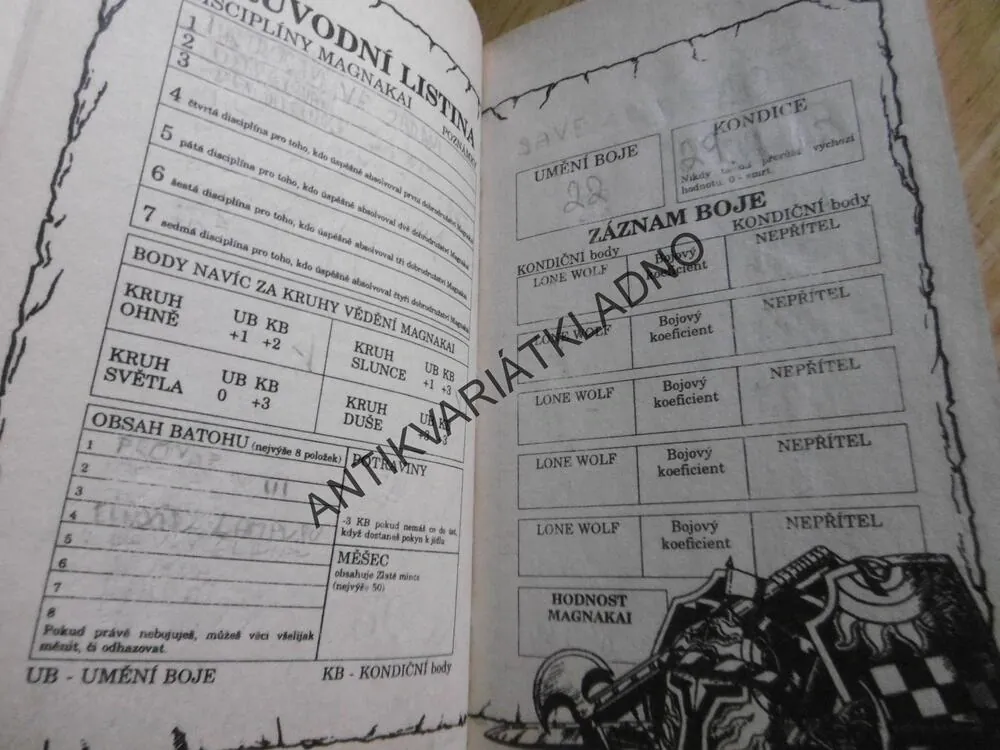 ŮVODNÍ LISTINA
DISCIPLÍNY MAGNAKAI
POZNÁMKY
1
2
3
4 čtvrtá disciplína pro toho, kdo úspěšně absolvoval první dobrodružství Magnakai
5 pátá disciplína pro toho, kdo úspěšně absolvoval dvě dobrodružství Magnakai
6 šestá disciplína pro toho, kdo úspěšně absolvoval tři dobrodružství Magnakai
7 sedmá disciplína pro toho, kdo úspěšně absolvoval čtyři dobrodružství Magnakai
BODY NAVÍC ZA KRUHY VĚDĚNÍ MAGNAKAI
KRUH OHNĚ UB KB +1 +2
KRUH SLUNCE UB KB +1 +3
KRUH SVĚTLA UB KB 0 +3
KRUH DUŠE UB
OBSAH BATOHU (nejvýše 8 položek)
1
2
3
4
5
6
7
8
Pokud právě nebojuješ, můžeš věci všelijak
měnit, či odhazovat.
POTRAVINY
-3 KB pokud nemáš co do úst,
když dostaneš pokyn k jídlu
MĚŠEC
obsahuje Zlaté mince
(nejvýše 50)
UB - UMĚNÍ BOJE KB - KONDIČNÍ body
UMĚNÍ BOJE
22
KONDICE
Nikdy
hodnotu 0 - smrt.
ZÁZNAM BOJE
KONDIČNÍ body KONDIČNÍ body
LONE WOLF Bojový koeficient NEPŘÍTEL
LONE WOLF Bojový koeficient NEPŘÍTEL
LONE WOLF Bojový koeficient NEPŘÍTEL
LONE WOLF Bojový koeficient NEPŘÍTEL
LONE WOLF Bojový koeficient NEPŘÍTEL
HODNOST
MAGNAKAI
ANTIKVARIÁTKLADNO